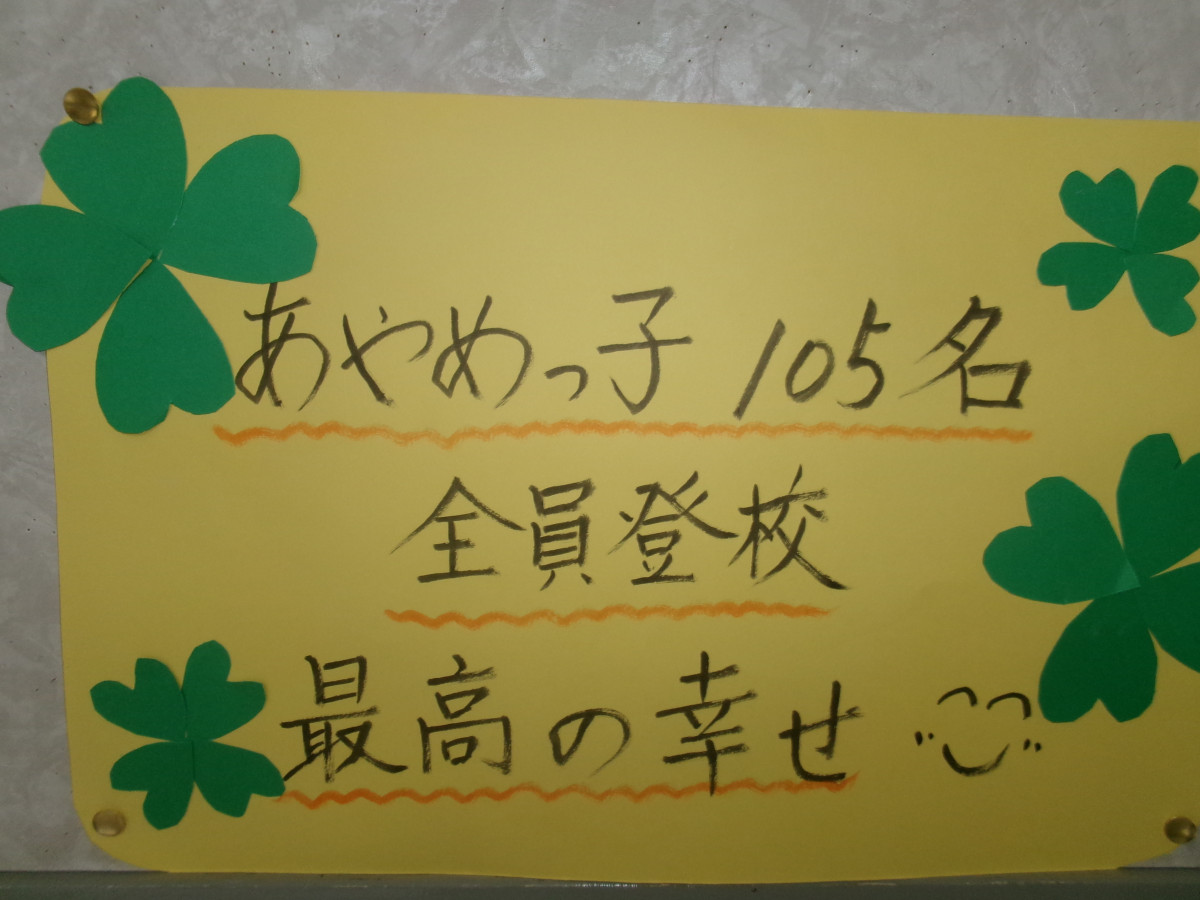 あやめっ子 105名
全員登校
最高の幸せ